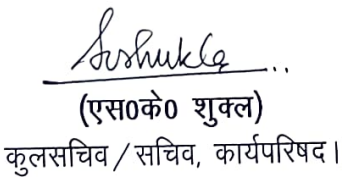 Sushukla
(एस0के0 शुक्ल)
कुलसचिव / सचिव, कार्यपरिषद।